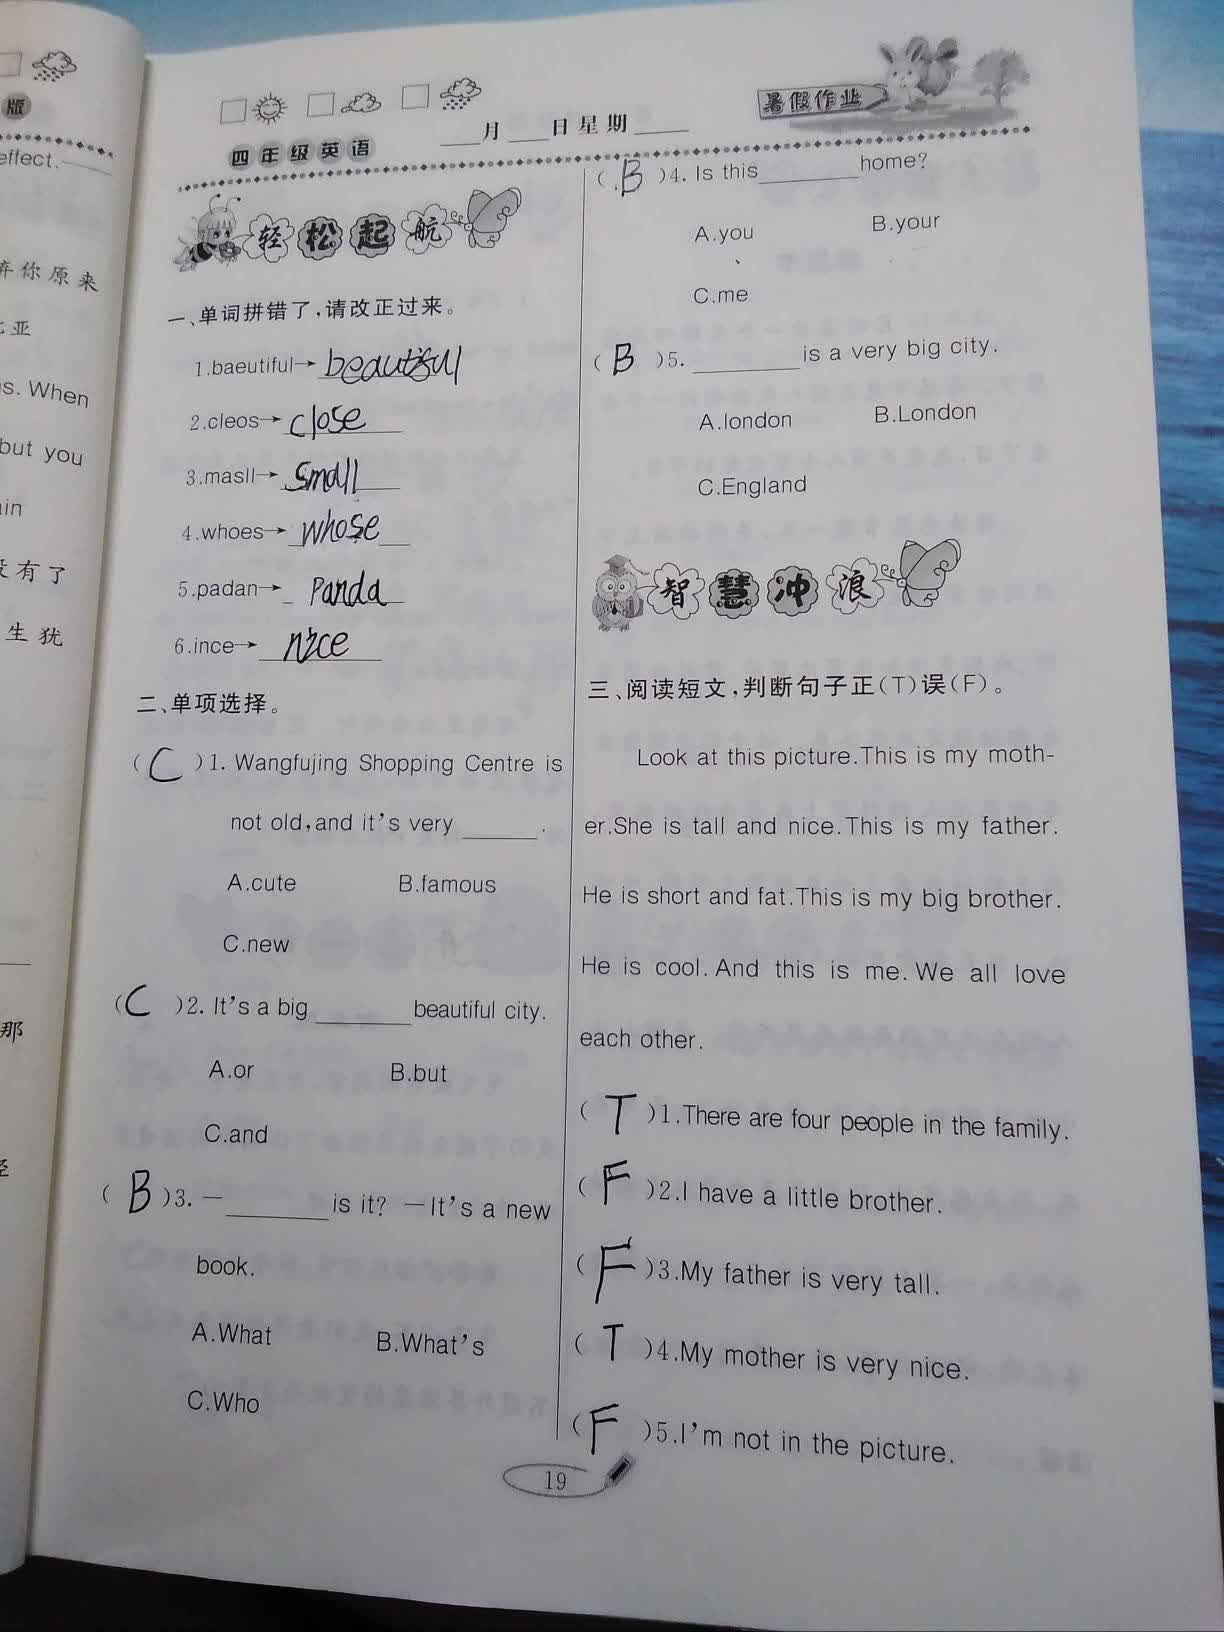 版
effect.
弃你原来
比亚
s. When
but you
ain
没有了
生犹
那
四年级英语
月 日星期
暑假作业
轻松起航
一、单词拼错了,请改正过来。
1.baeutiful→ beautiful
2.cleos→ close
3.masll→ small
4.whoes→ whose
5.padan→ Panda
6.ince→ nice
二、单项选择。
( C )1. Wangfujing Shopping Centre is
not old,and it's very ______.
A.cute B.famous
C.new
( C )2. It's a big ______ beautiful city.
A.or B.but
C.and
( B )3. — ______ is it? —It's a new
book.
A.What B.What's
C.Who
( B )4. Is this ______ home?
A.you B.your
C.me
( B )5. ______ is a very big city.
A.london B.London
C.England
智慧冲浪
三、阅读短文,判断句子正(T)误(F)。
Look at this picture.This is my moth-
er.She is tall and nice.This is my father.
He is short and fat.This is my big brother.
He is cool. And this is me. We all love
each other.
( T )1.There are four people in the family.
( F )2.I have a little brother.
( F )3.My father is very tall.
( T )4.My mother is very nice.
( F )5.I'm not in the picture.
19